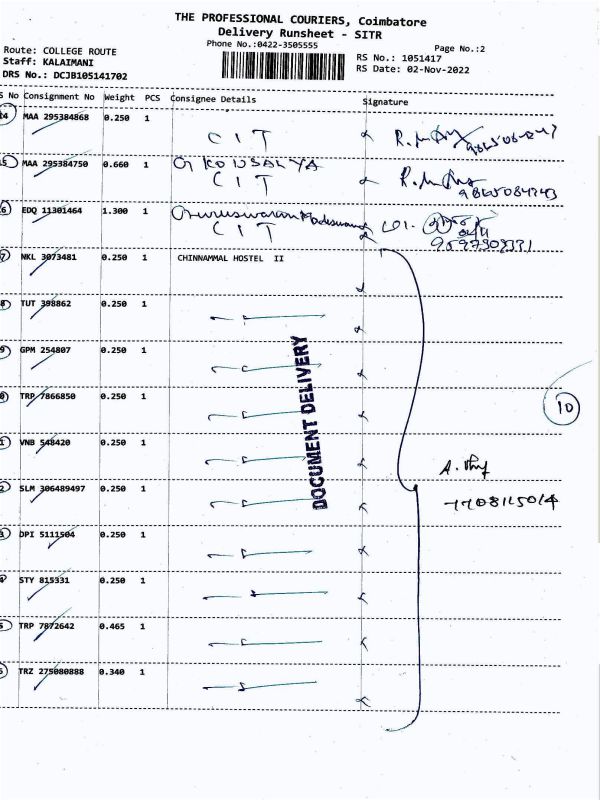 THE PROFESSIONAL COURIERS, Coimbatore
Delivery Runsheet - SITR
Phone No.:0422-3505555
Page No.:2
Route: COLLEGE ROUTE
Staff: KALAIMANI
DRS No.: DCJB105141702
RS No.: 1051417
RS Date: 02-Nov-2022
S No Consignment No Weight PCS Consignee Details Signature
14 MAA 295384868 0.250 1 CIT
15 MAA 295384750 0.660 1 G KOUSALYA
CIT
9865084243
16 EDQ 11301464 1.300 1
CIT
7 NKL 3073481 0.250 1 CHINNAMMAL HOSTEL II
8 TUT 398862 0.250 1
9 GPM 254807 0.250 1
0 TRP 7866850 0.250 1
10
1 VNB 548420 0.250 1
2 SLM 306489497 0.250 1
7708115014
3 DPI 5111504 0.250 1
4 STY 815331 0.250 1
5 TRP 7872642 0.465 1
6 TRZ 275080888 0.340 1
DOCUMENT DELIVERY